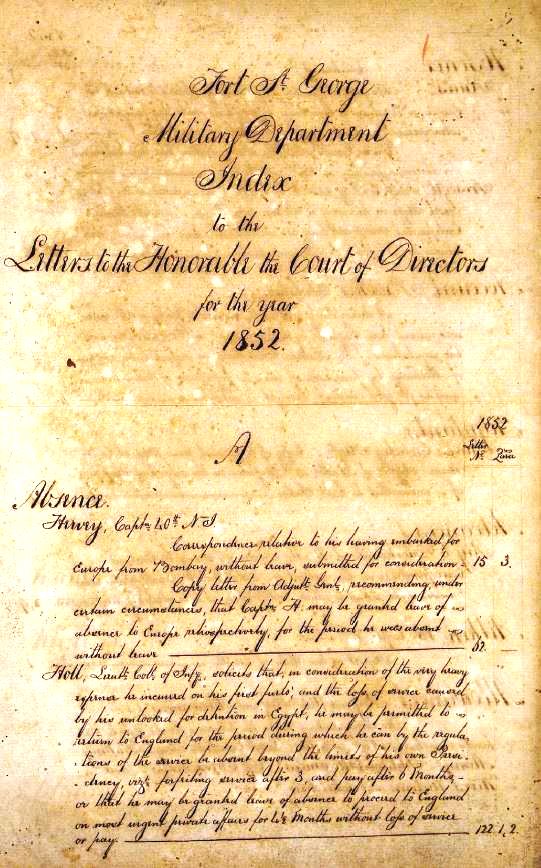 Fort St. George
Military Department
Index
to the
Letters to the Honorable the Court of Directors
for the year
1852.
1852
A
Letter No. Para
Absence.
Hervey, Captn. 40th N.I.
Correspondence relative to his having embarked for
Europe from Bombay, without leave, submitted for consideration - 15 3.
Copy letter from Adjutt. Genl., recommending, under
certain circumstances, that Captn. H. may be granted leave of
absence to Europe retrospectively, for the period he was absent
without leave 52.
Holl, Lieutt. Coll. of Infy. solicits that, in consideration of the very heavy
expense he incurred on his first furlo', and the loss of service caused
by his unlooked for detention in Egypt, he may be permitted to
return to England for the period during which he can by the regula-
-tions of the service be absent beyond the limits of his own Presi-
-dency, vizt. forfeiting service after 3, and pay after 6 Months,
or that he may be granted leave of absence to proceed to England
on most urgent private affairs for Months without loss of service
or pay. 122 1, 2.